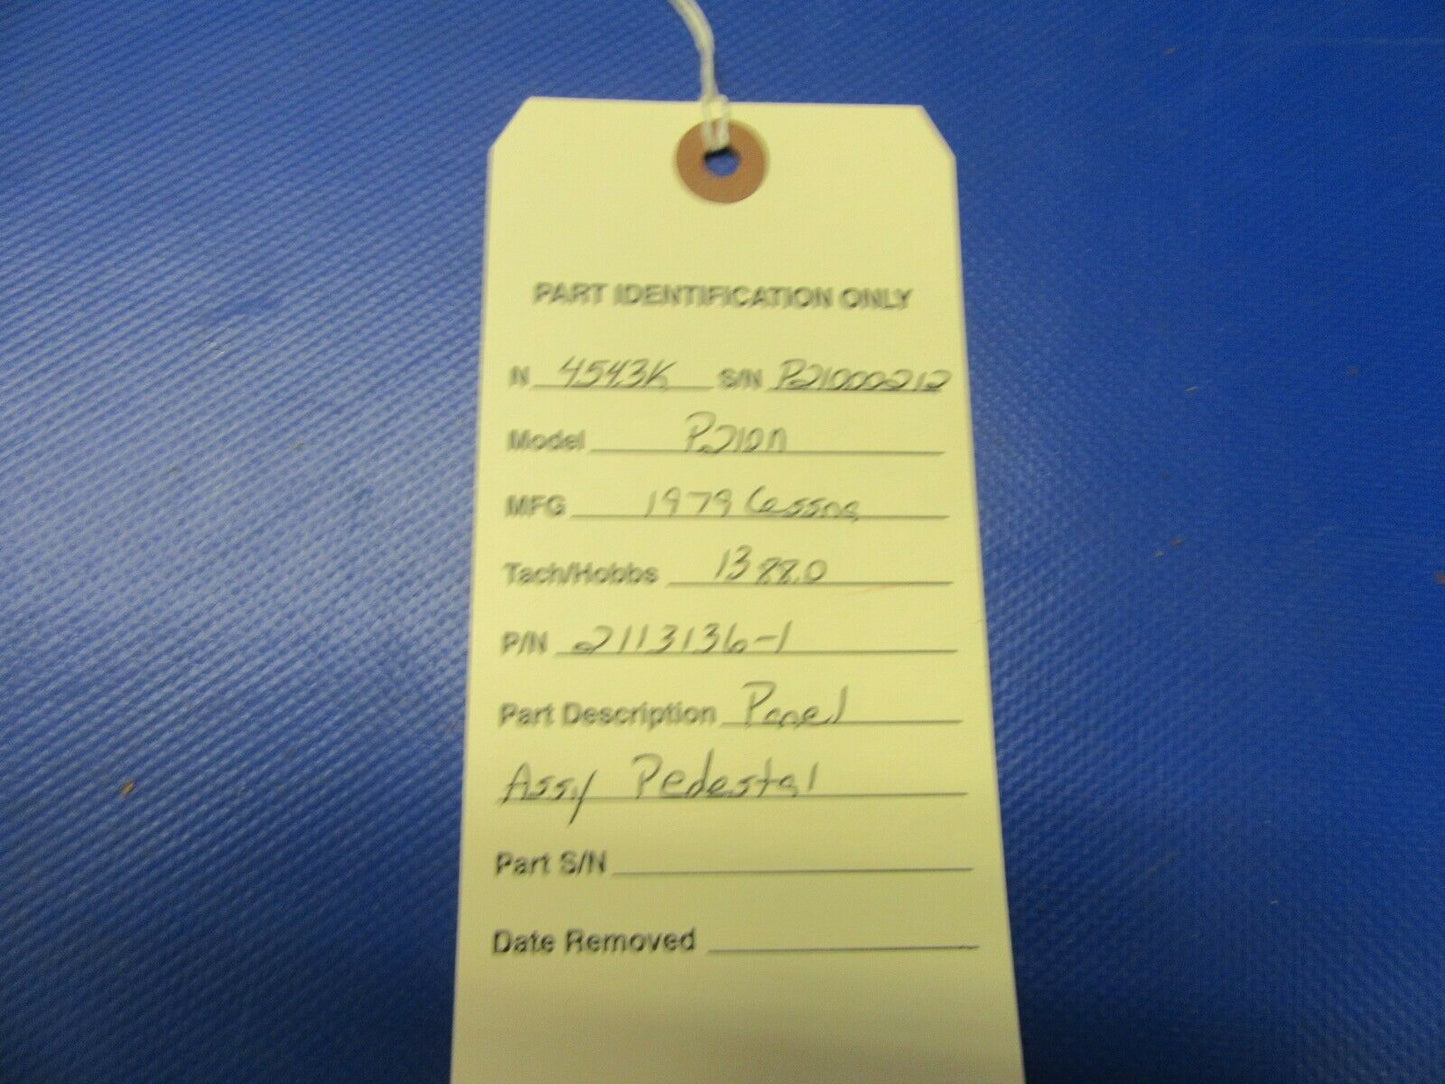 PART IDENTIFICATION ONLY
N 4543K S/N P21000212
Model P210N
MFG 1979 Cessna
Tach/Hobbs 1388.0
P/N 2113136-1
Part Description Panel
Assy Pedestal
Part S/N
Date Removed